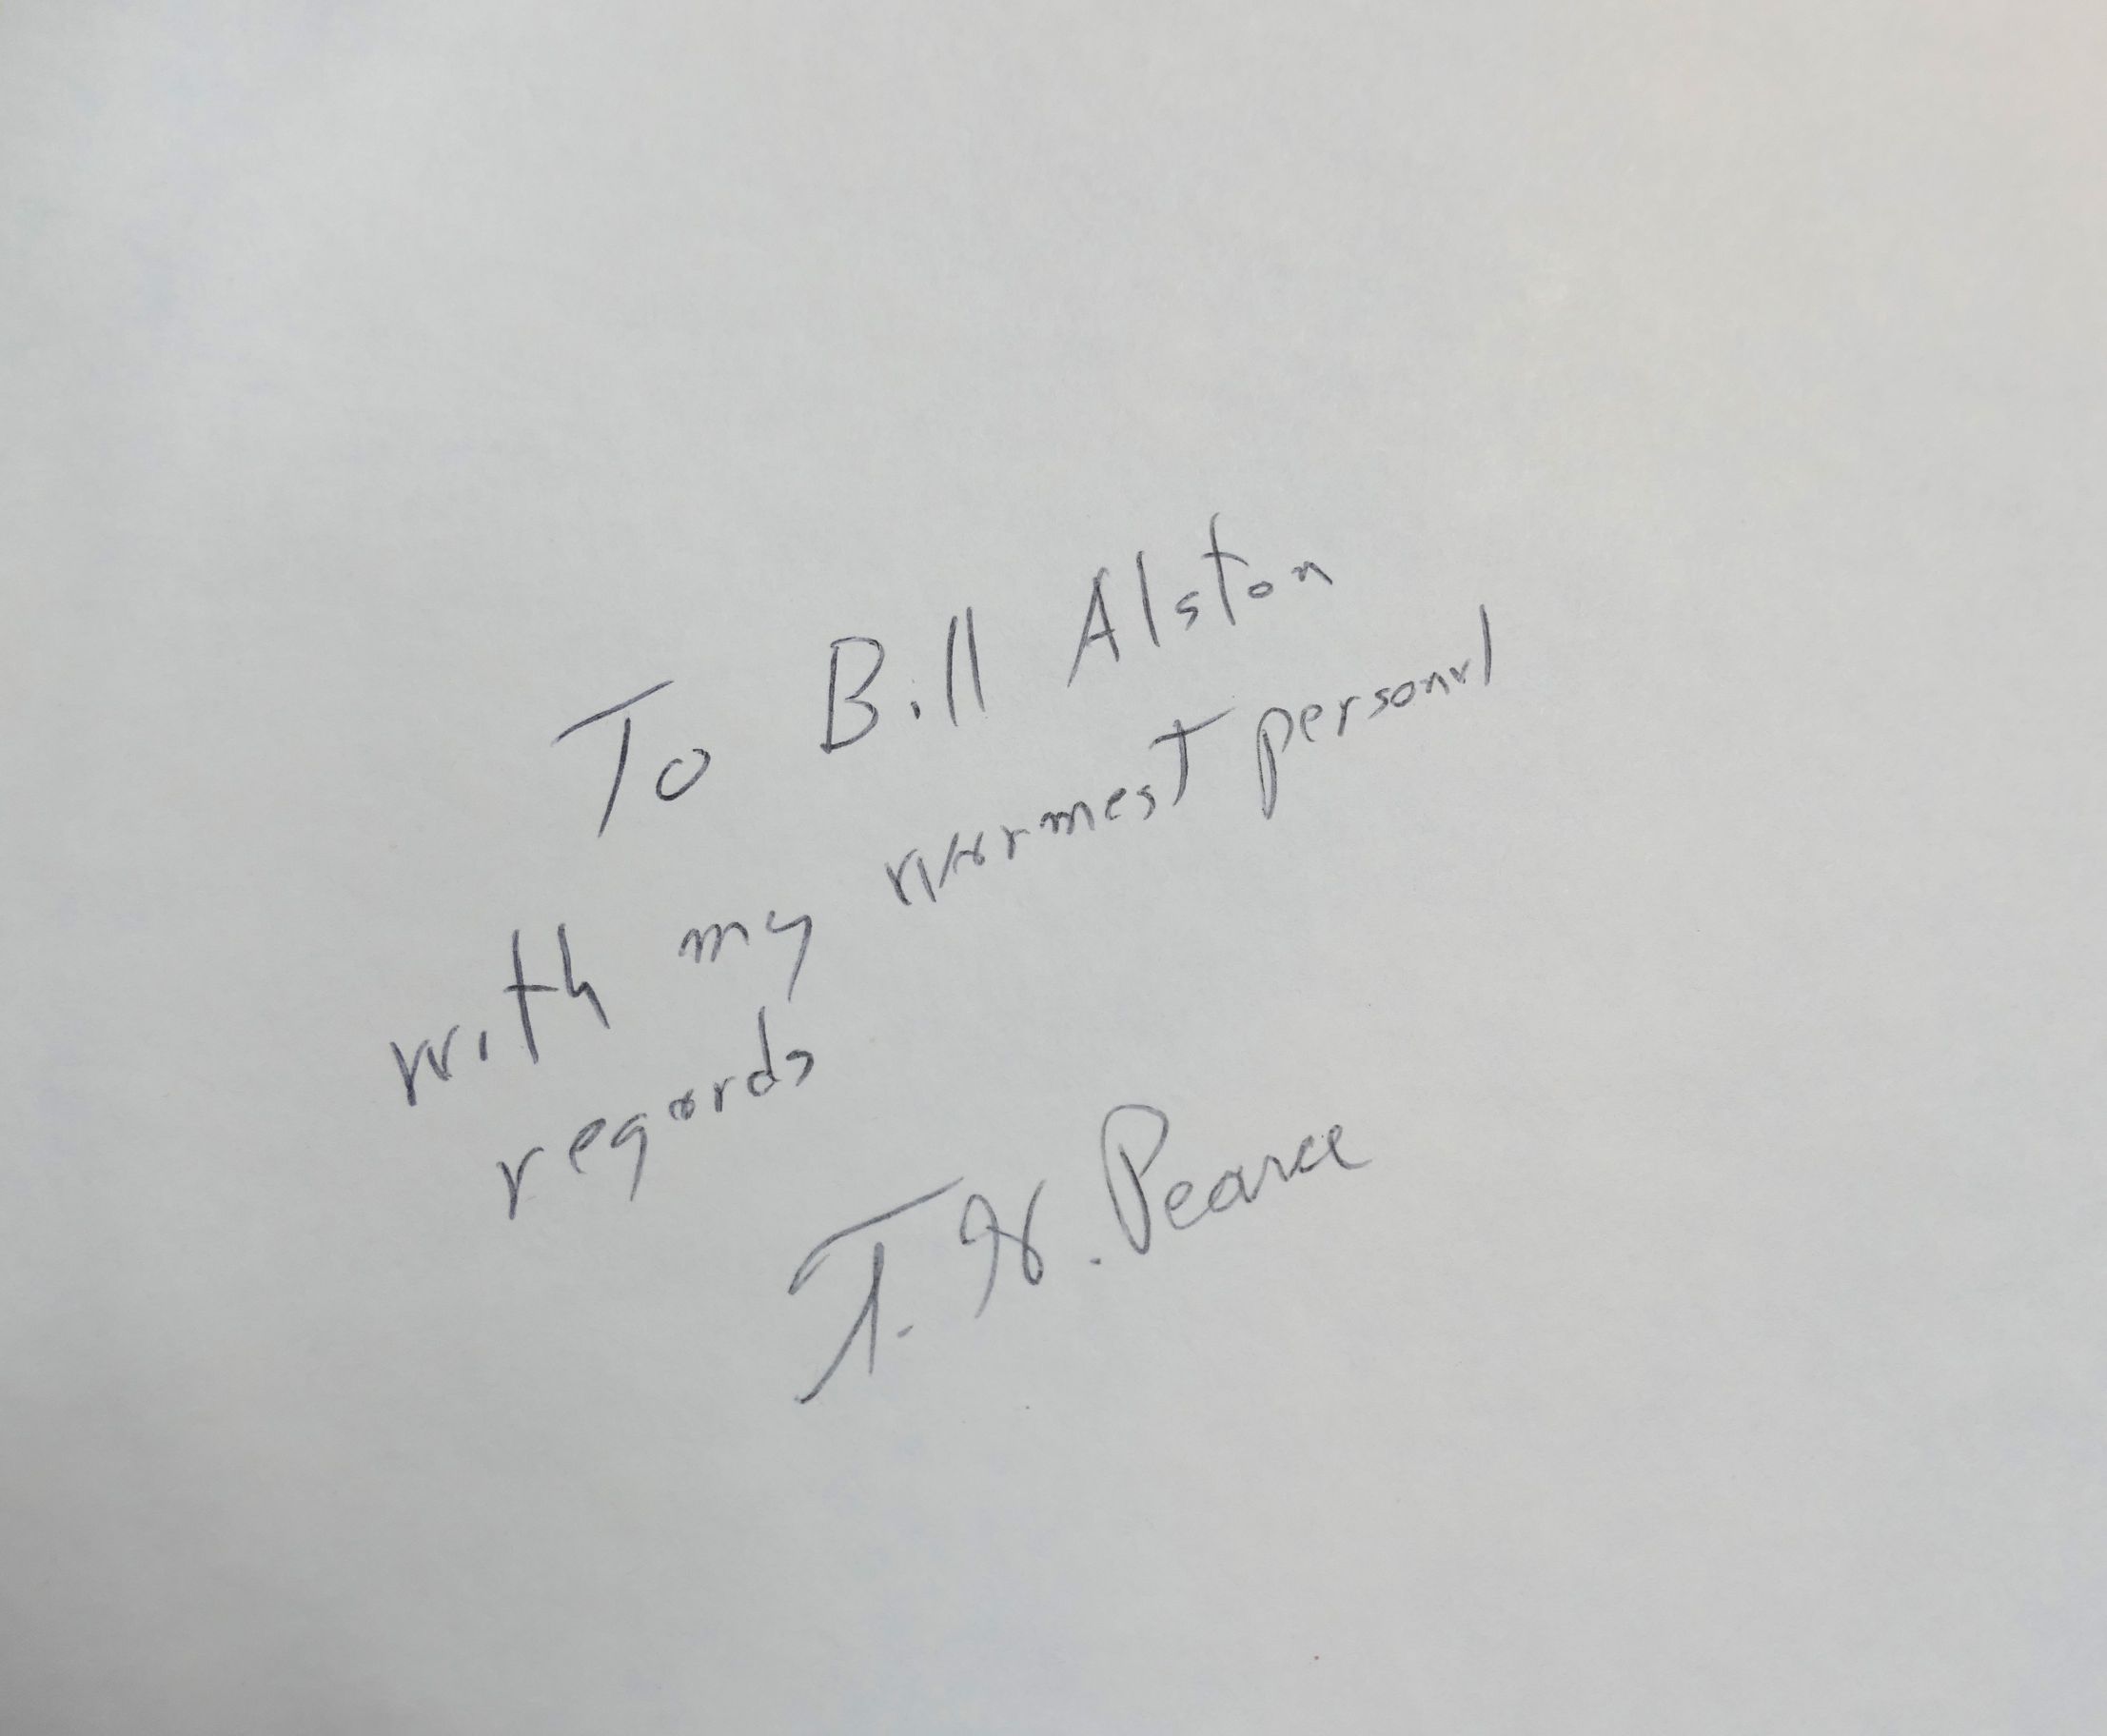 To Bill Alston
with my warmest personal
regards
T. H. Pearce